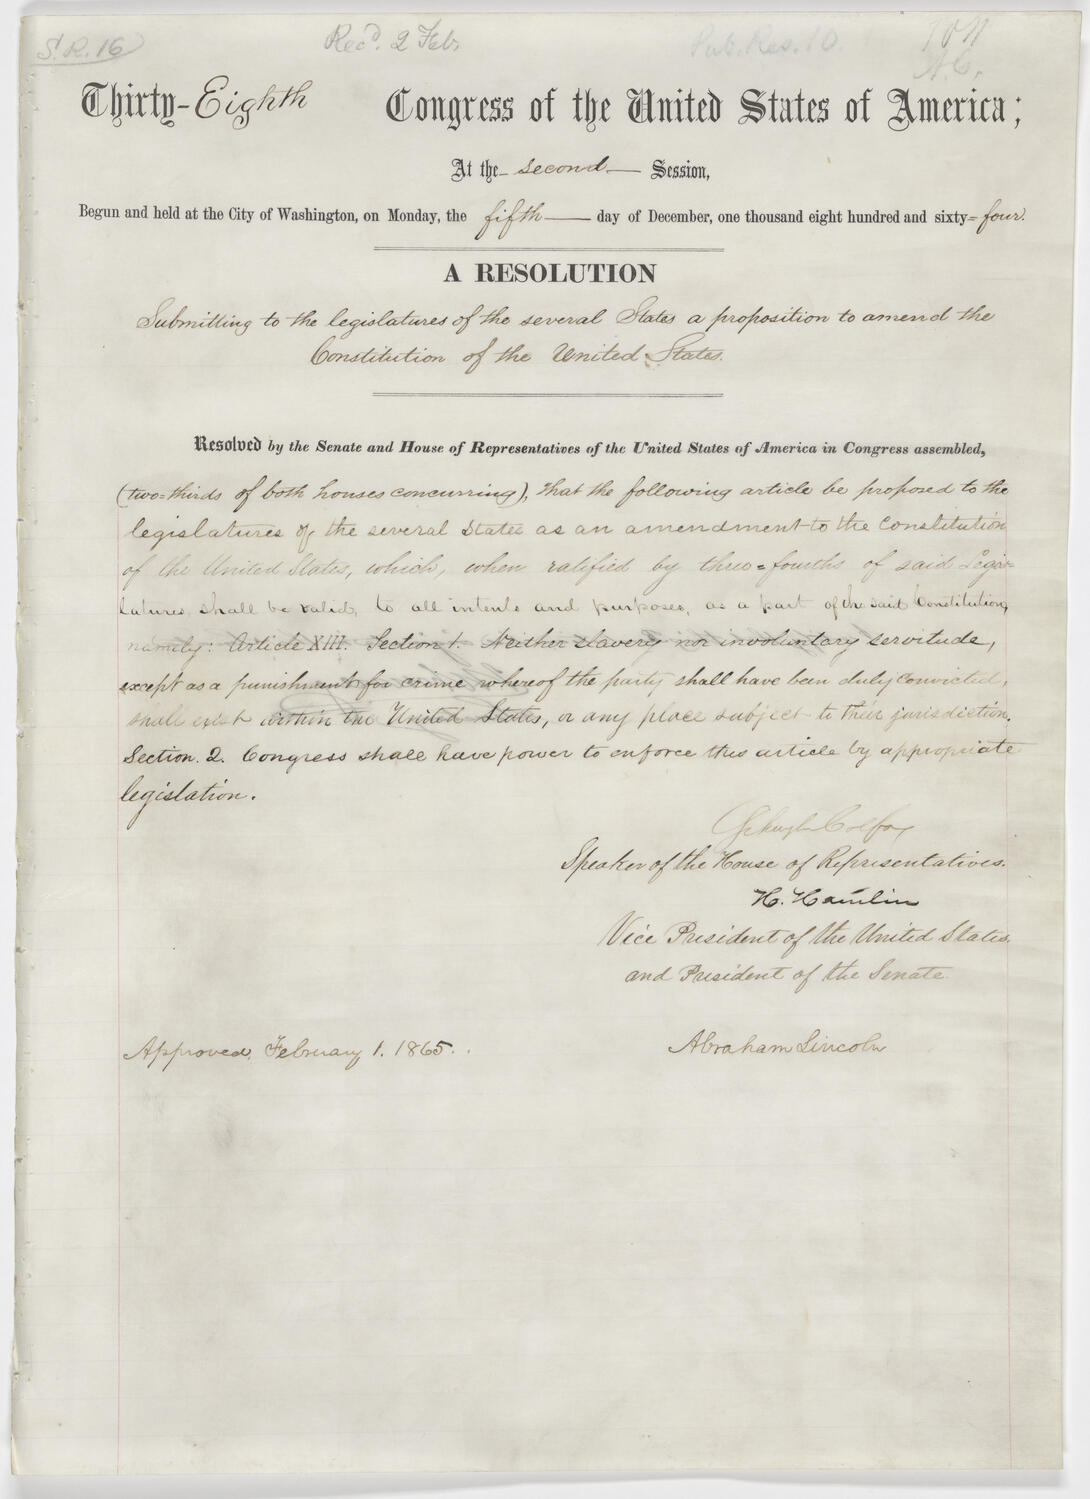 S.R. 16
Rec'd. 2 Feb.
Pub. Res. 10.
Thirty-Eighth Congress of the United States of America;
At the second Session,
Begun and held at the City of Washington, on Monday, the fifth day of December, one thousand eight hundred and sixty-four.
A RESOLUTION
Submitting to the legislatures of the several States a proposition to amend the
Constitution of the United States.
Resolved by the Senate and House of Representatives of the United States of America in Congress assembled,
(two-thirds of both houses concurring), that the following article be proposed to the
legislatures of the several States as an amendment to the Constitution
of the United States, which, when ratified by three-fourths of said Legis-
latures shall be valid, to all intents and purposes, as a part of the said Constitution,
namely: Article XIII. Section 1. Neither slavery nor involuntary servitude,
except as a punishment for crime whereof the party shall have been duly convicted,
shall exist within the United States, or any place subject to their jurisdiction.
Section. 2. Congress shall have power to enforce this article by appropriate
legislation.
Schuyler Colfax
Speaker of the House of Representatives.
H. Hamlin
Vice President of the United States,
and President of the Senate
Approved, February 1. 1865.
Abraham Lincoln